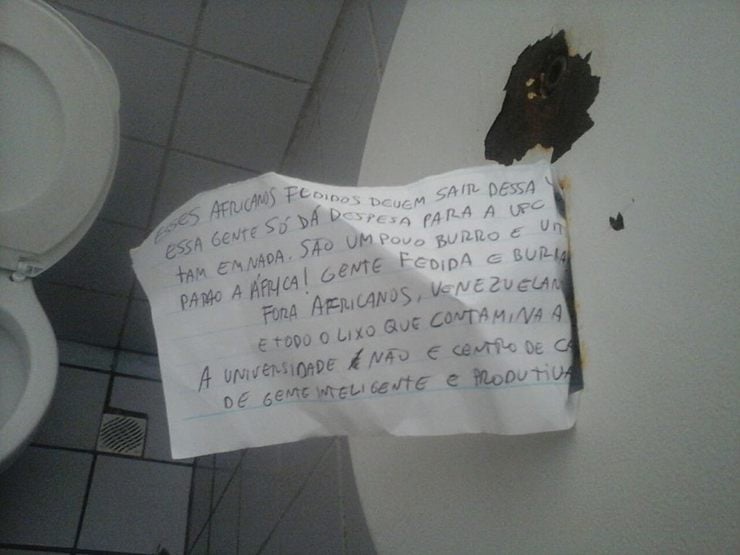 ESSES AFRICANOS FEDIDOS DEVEM SAIR DESSA
ESSA GENTE SÓ DÁ DESPESA PARA A UFC
TAM EM NADA. SÃO UM POVO BURRO E VIT
PARAO A ÁFRICA! GENTE FEDIDA E BURRA
FORA AFRICANOS, VENEZUELAN
E TODO O LIXO QUE CONTAMINA A
A UNIVERSIDADE NÃO E CENTRO DE CA
DE GENTE INTELIGENTE E PRODUTIVA